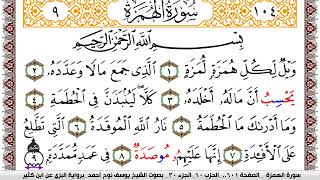 ٩ سُورَةُ الهُمَزَة ١٠٤
بِسْمِ اللَّهِ الرَّحْمَٰنِ الرَّحِيمِ
وَيْلٌ لِّكُلِّ هُمَزَةٍ لُّمَزَةٍ ١ الَّذِي جَمَعَ مَالًا وَعَدَّدَهُ ٢
يَحْسِبُ أَنَّ مَالَهُ أَخْلَدَهُ ٣ كَلَّا لَيُنبَذَنَّ فِي الْحُطَمَةِ ٤
وَمَا أَدْرَىٰكَ مَا الْحُطَمَةُ ٥ نَارُ اللَّهِ الْمُوقَدَةُ ٦ الَّتِي تَطَّلِعُ
عَلَى الْأَفْئِدَةِ ٧ إِنَّهَا عَلَيْهِمُ مُوصَدَةٌ ٨ فِي عَمَدٍ مُّمَدَّدَةٍ ٩
سورة الهمزة الصفحة ٦٠١.. الحزب ٦٠ الجزء ٣٠ بصوت الشيخ يوسف نوح أحمد برواية البزي عن ابن كثير